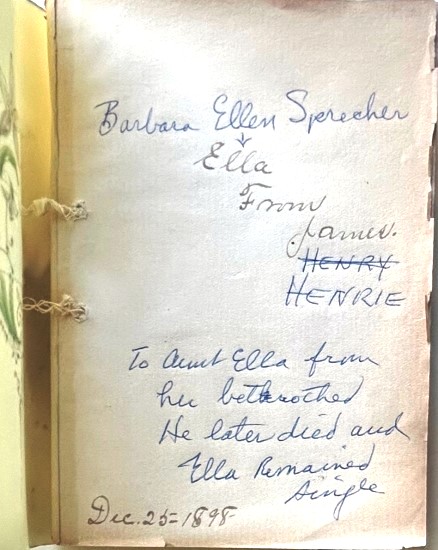 Barbara Ellen Sprecher
Ella
From
James.
HENRY
HENRIE
To Aunt Ella from
her bethrothed
He later died and
Ella Remained
single
Dec. 25=1898